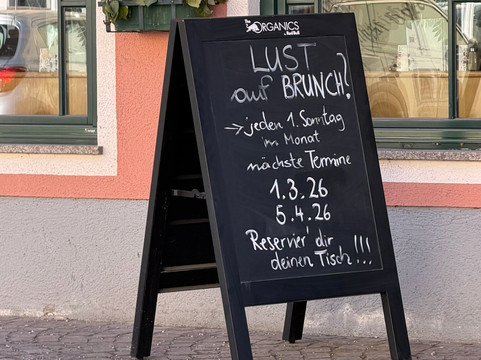 The
ORGANICS
by Red Bull
LUST
auf BRUNCH?
→ jeden 1. Sonntag
im Monat
nächste Termine
1.3.26
5.4.26
Reservier' dir
deinen Tisch!!!